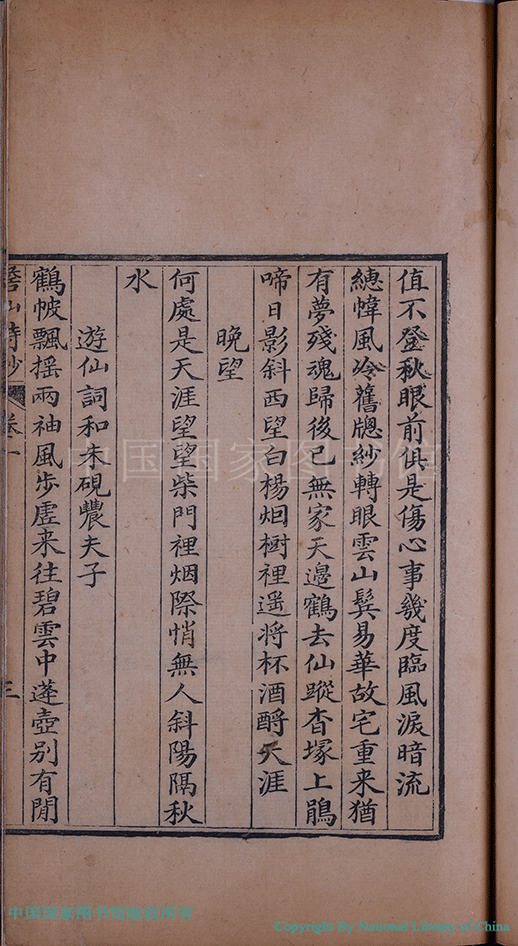 值不登秋眼前俱是傷心事幾度臨風淚暗流
繐幃風冷舊牕紗轉眼雲山鬂易華故宅重来猶
有夢殘魂歸後已無家天邊鶴去仙蹤杳塚上鵑
啼日影斜西望白楊烟樹裡遥将杯酒酹天涯
晚望
何處是天涯望望柴門裡烟際悄無人斜陽隔秋
水
遊仙詞和朱硯農夫子
鶴帔飄摇兩袖風步虛来往碧雲中蓬壺別有閒
山詩鈔 卷一 三
中国国家图书馆
中国国家图书馆版权所有
Copyright By National Library of China